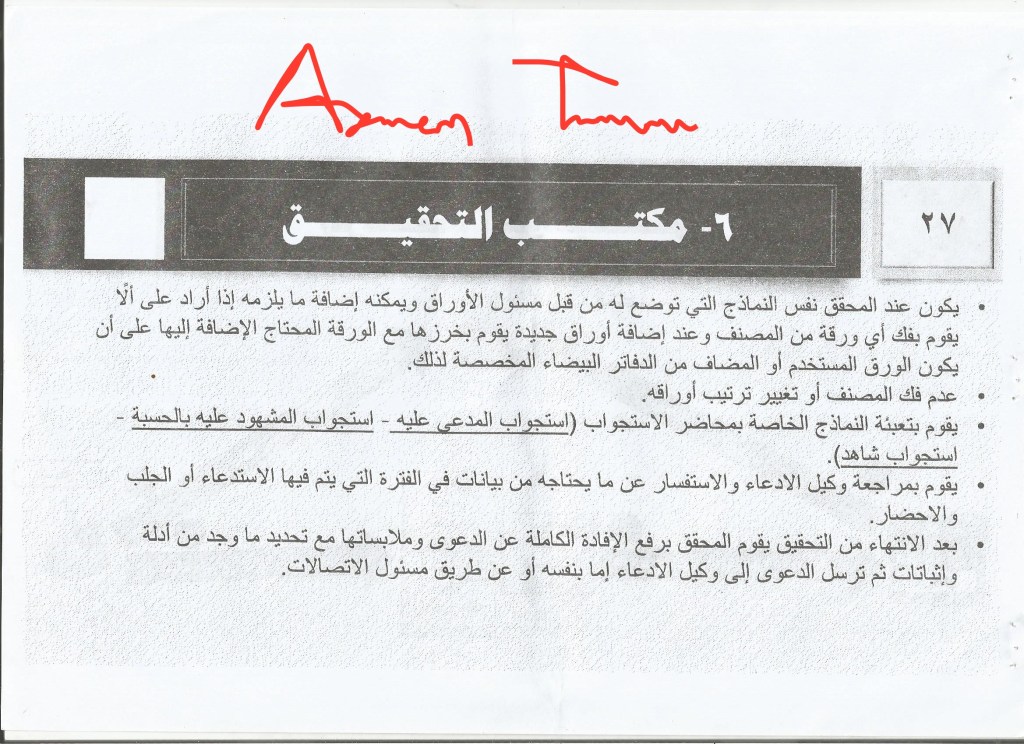 ٢٧
٦- مكتـــــب التحقيـــــق
• يكون عند المحقق نفس النماذج التي توضع له من قبل مسئول الأوراق ويمكنه إضافة ما يلزمه إذا أراد على ألا
يقوم بفك أي ورقة من المصنف وعند إضافة أوراق جديدة يقوم بخرزها مع الورقة المحتاج الإضافة إليها على أن
يكون الورق المستخدم أو المضاف من الدفاتر البيضاء المخصصة لذلك.
• عدم فك المصنف أو تغيير ترتيب أوراقه.
• يقوم بتعبئة النماذج الخاصة بمحاضر الاستجواب (استجواب المدعى عليه - استجواب المشهود عليه بالحسبة -
استجواب شاهد).
• يقوم بمراجعة وكيل الادعاء والاستفسار عن ما يحتاجه من بيانات في الفترة التي يتم فيها الاستدعاء أو الجلب
والاحضار.
• بعد الانتهاء من التحقيق يقوم المحقق برفع الإفادة الكاملة عن الدعوى وملابساتها مع تحديد ما وجد من أدلة
وإثباتات ثم ترسل الدعوى إلى وكيل الادعاء إما بنفسه أو عن طريق مسئول الاتصالات.